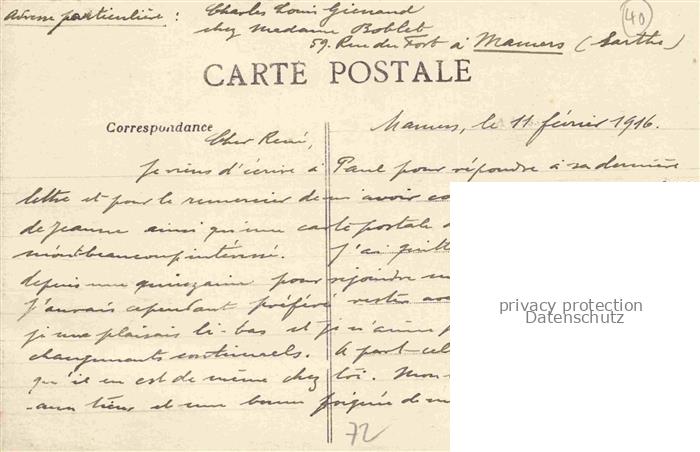 Adresse particulière : Charles Louis
chez Madame Boblet
59, Rue du Fort à Mamers (Sarthe)
40
CARTE POSTALE
Correspondance
Mamers, le 11 février 1916.
Cher René,
Je viens d'écrire à Paul pour répondre à sa dernière
lettre et pour le remercier de m'avoir
de Jeanne ainsi qu'une carte postale
m'ont beaucoup intéressé. J'ai
depuis une quinzaine pour rejoindre
J'aurais cependant préféré rester
je me plaisais là-bas et je n'aime
changements continuels. A part
qu'il en est de même chez toi. Mon
aux tiens et une bonne poignée de
72
privacy protection
Datenschutz